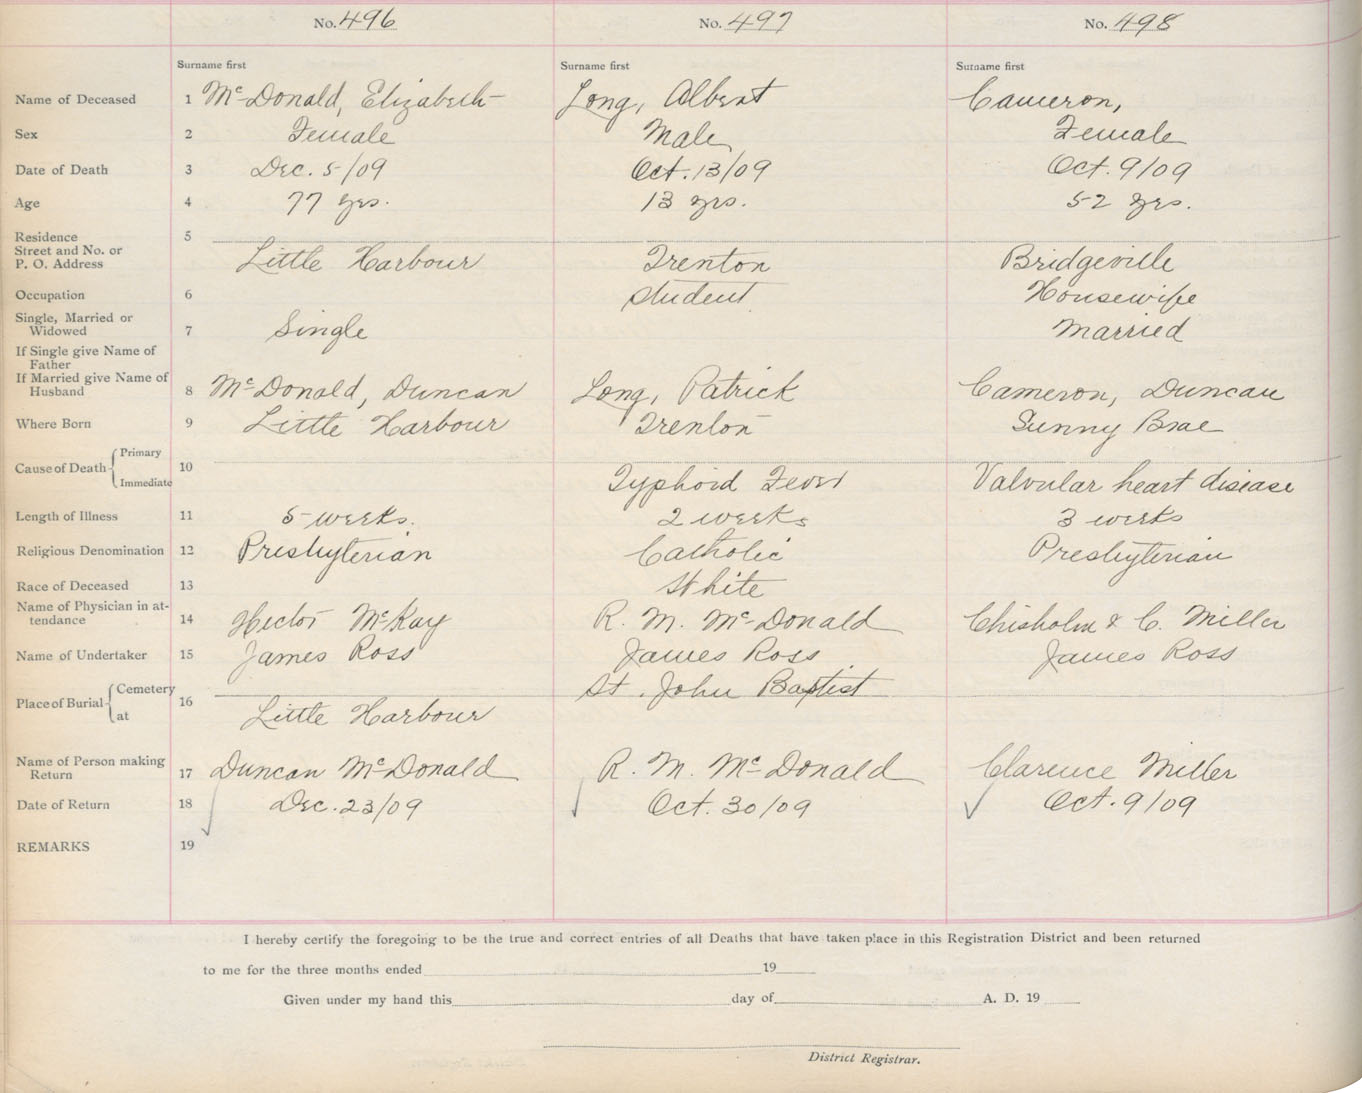 No. 496 No. 497 No. 498
Surname first Surname first Surname first
Name of Deceased 1 McDonald, Elizabeth Long, Albert Cameron,
Sex 2 Female Male Female
Date of Death 3 Dec. 5/09 Oct. 13/09 Oct. 9/09
Age 4 77 yrs. 13 yrs. 52 yrs.
Residence 5
Street and No. or
P. O. Address Little Harbour Trenton Bridgeville
Occupation 6 Student Housewife
Single, Married or
Widowed 7 Single Married
If Single give Name of
Father
If Married give Name of
Husband 8 McDonald, Duncan Long, Patrick Cameron, Duncan
Where Born 9 Little Harbour Trenton Sunny Brae
Cause of Death Primary 10
Immediate Typhoid Fever Valvular heart disease
Length of Illness 11 5 weeks. 2 weeks 3 weeks
Religious Denomination 12 Presbyterian Catholic Presbyterian
Race of Deceased 13 White
Name of Physician in at-
tendance 14 Hector McKay R. M. McDonald Chisholm & C. Miller
Name of Undertaker 15 James Ross James Ross James Ross
Place of Burial Cemetery 16 St. John Baptist
at Little Harbour
Name of Person making
Return 17 Duncan McDonald R. M. McDonald Clarence Miller
Date of Return 18 Dec. 23/09 Oct. 30/09 Oct. 9/09
REMARKS 19
I hereby certify the foregoing to be the true and correct entries of all Deaths that have taken place in this Registration District and been returned
to me for the three months ended 19
Given under my hand this day of A. D. 19
District Registrar.